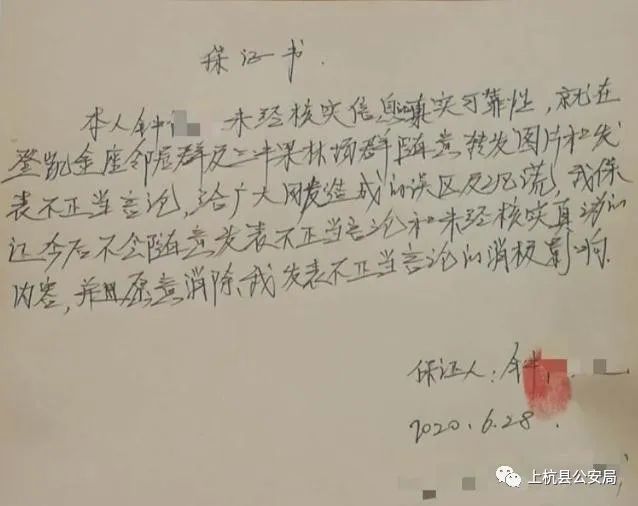 保证书
本人钟 未经核实信息真实可靠性,就在
登凯金座邻居群及二牛果林场群随意转发图片和发
表不正当言论,给广大网友造成的误区及恐慌,我保
证今后不会随意发表不正当言论和未经核实真讷的
内容,并且愿意消除我发表不正当言论的消极影响.
保证人:钟
2020.6.28.
上杭县公安局